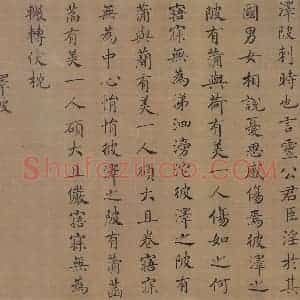 澤陂刺時也言靈公君臣淫於其
國男女相說憂思感傷焉彼澤之
陂有蒲與荷有美一人傷如之何
寤寐無為涕泗滂沱彼澤之陂有
蒲與蕑有美一人碩大且卷寤寐
無為中心悁悁彼澤之陂有蒲菡
萏有美一人碩大且儼寤寐無為
輾轉伏枕
澤陂